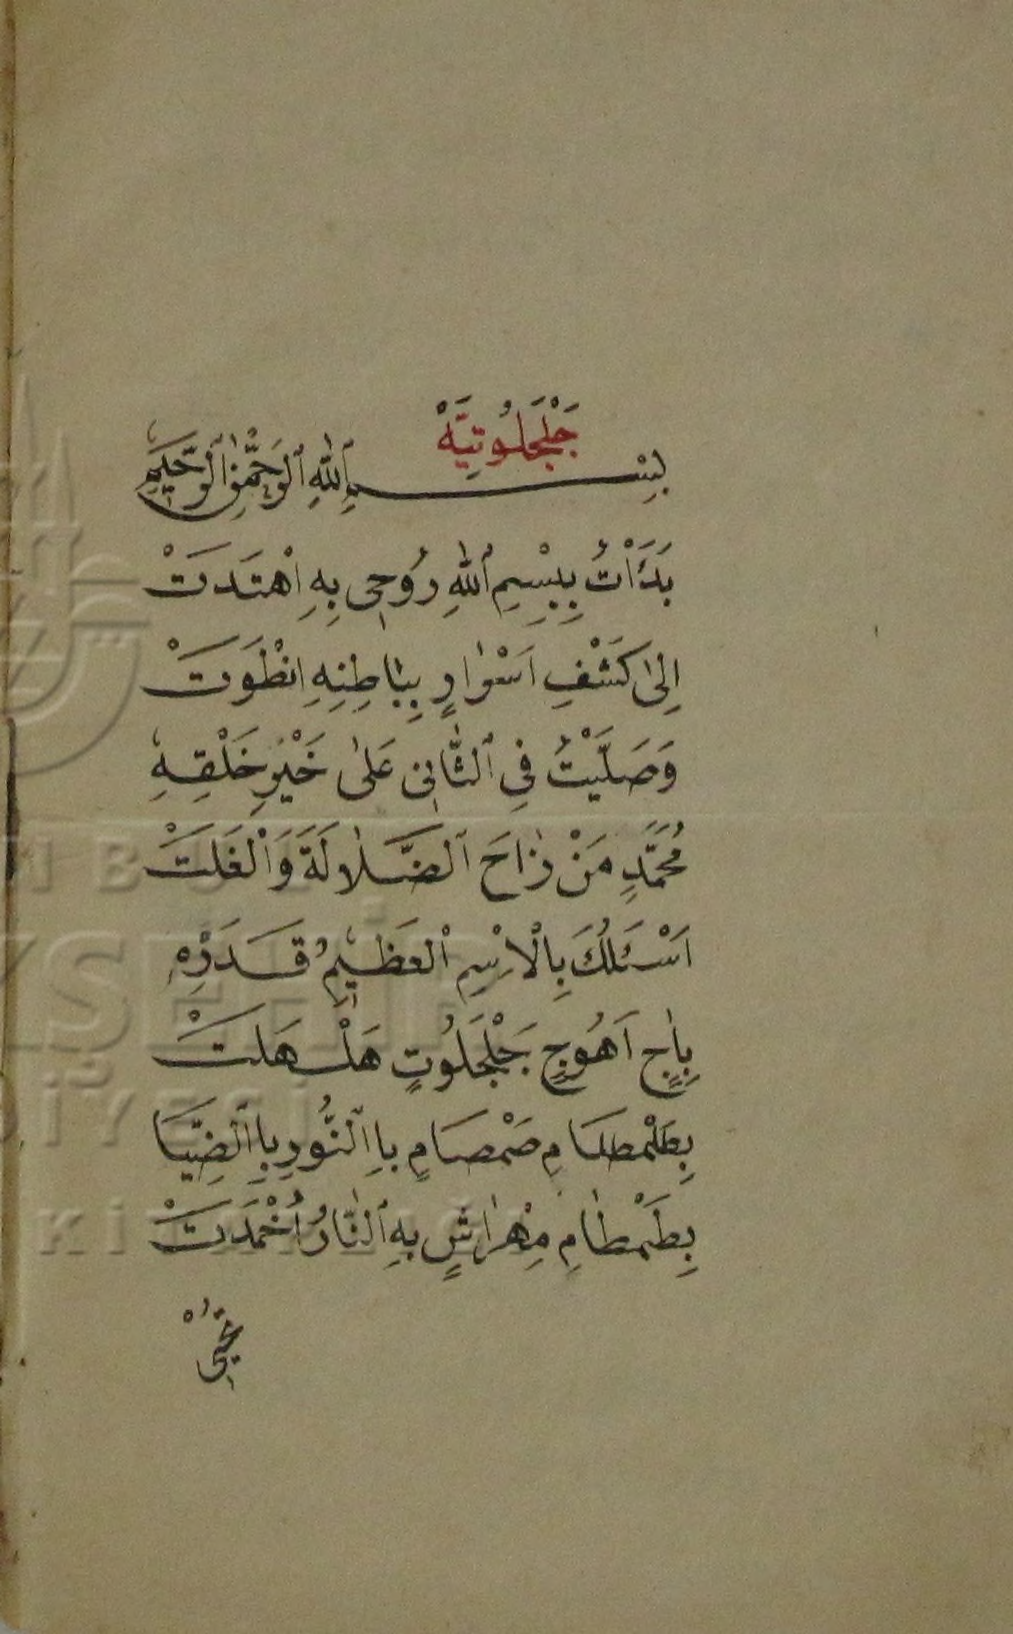 جَلْجَلُوتِيَّهْ
بِسْمِ ٱللّٰهِ ٱلرَّحْمٰنِ ٱلرَّحِيمِ
بَدَأْتُ بِبِسْمِ ٱللّٰهِ رُوحِى بِهِ اِهْتَدَتْ
اِلٰى كَشْفِ اَسْرَارٍ بِبَاطِنِهِ انْطَوَتْ
وَصَلَّيْتُ فِى ٱلثَّانِى عَلٰى خَيْرِ خَلْقِهِ
مُحَمَّدٍ مَنْ زَاحَ ٱلضَّلَالَةَ وَٱلْغَلَتْ
اَسْئَلُكَ بِالْاِسْمِ ٱلْعَظِيمِ قَدَرُهِ
بِاٰجٍ اَهُوجٍ جَلْجَلُوتٍ هَلْهَلَتْ
بِطَلْمطَامٍ صَمْصَامٍ بِاٱلنُّورِ بِاٱلضِّيَا
بِطَمْطَامٍ مِهْرَاشٍ بِهِ ٱلنَّارُ اُخْمَدَتْ
BU
KİTA